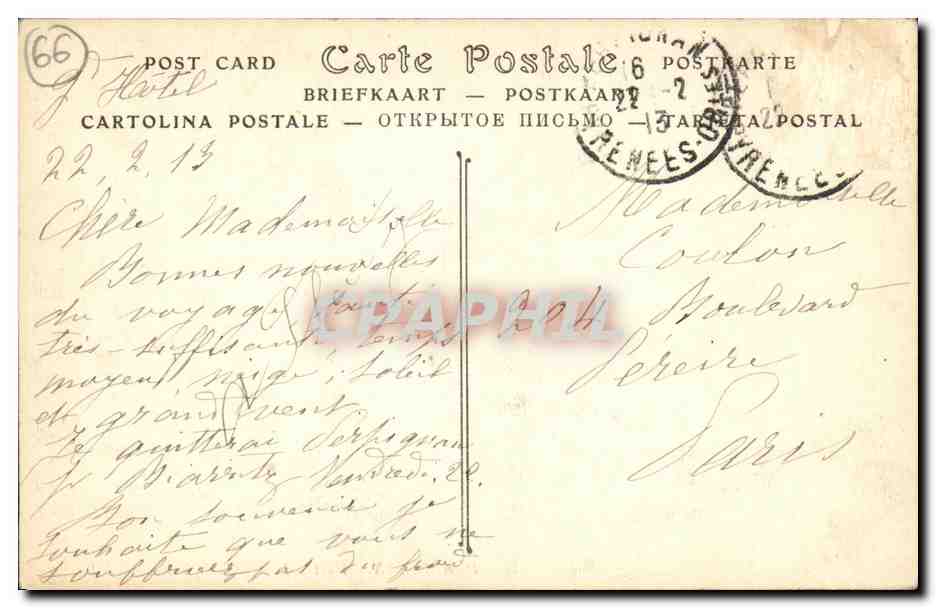 66
POST CARD Carte Postale POSTKARTE
Gd Hôtel
BRIEFKAART — POSTKAART
CARTOLINA POSTALE — ОТКРЫТОЕ ПИСЬМО — TARJETA POSTAL
6
22 -2
13
PYRENEES-ORIENT
22
PYRENEES
22. 2. 13
Chère Mademoiselle
Bonnes nouvelles
du voyage santé
très-suffisante temps
moyen neige, soleil
et grand vent
Je quitterai Perpignan
pr Biarritz Vendredi
Bon souvenir je
souhaite que vous ne
souffriez pas du froid
Mademoiselle
Coulon
204 Boulevard
Péreire
Paris
CPAPHIL